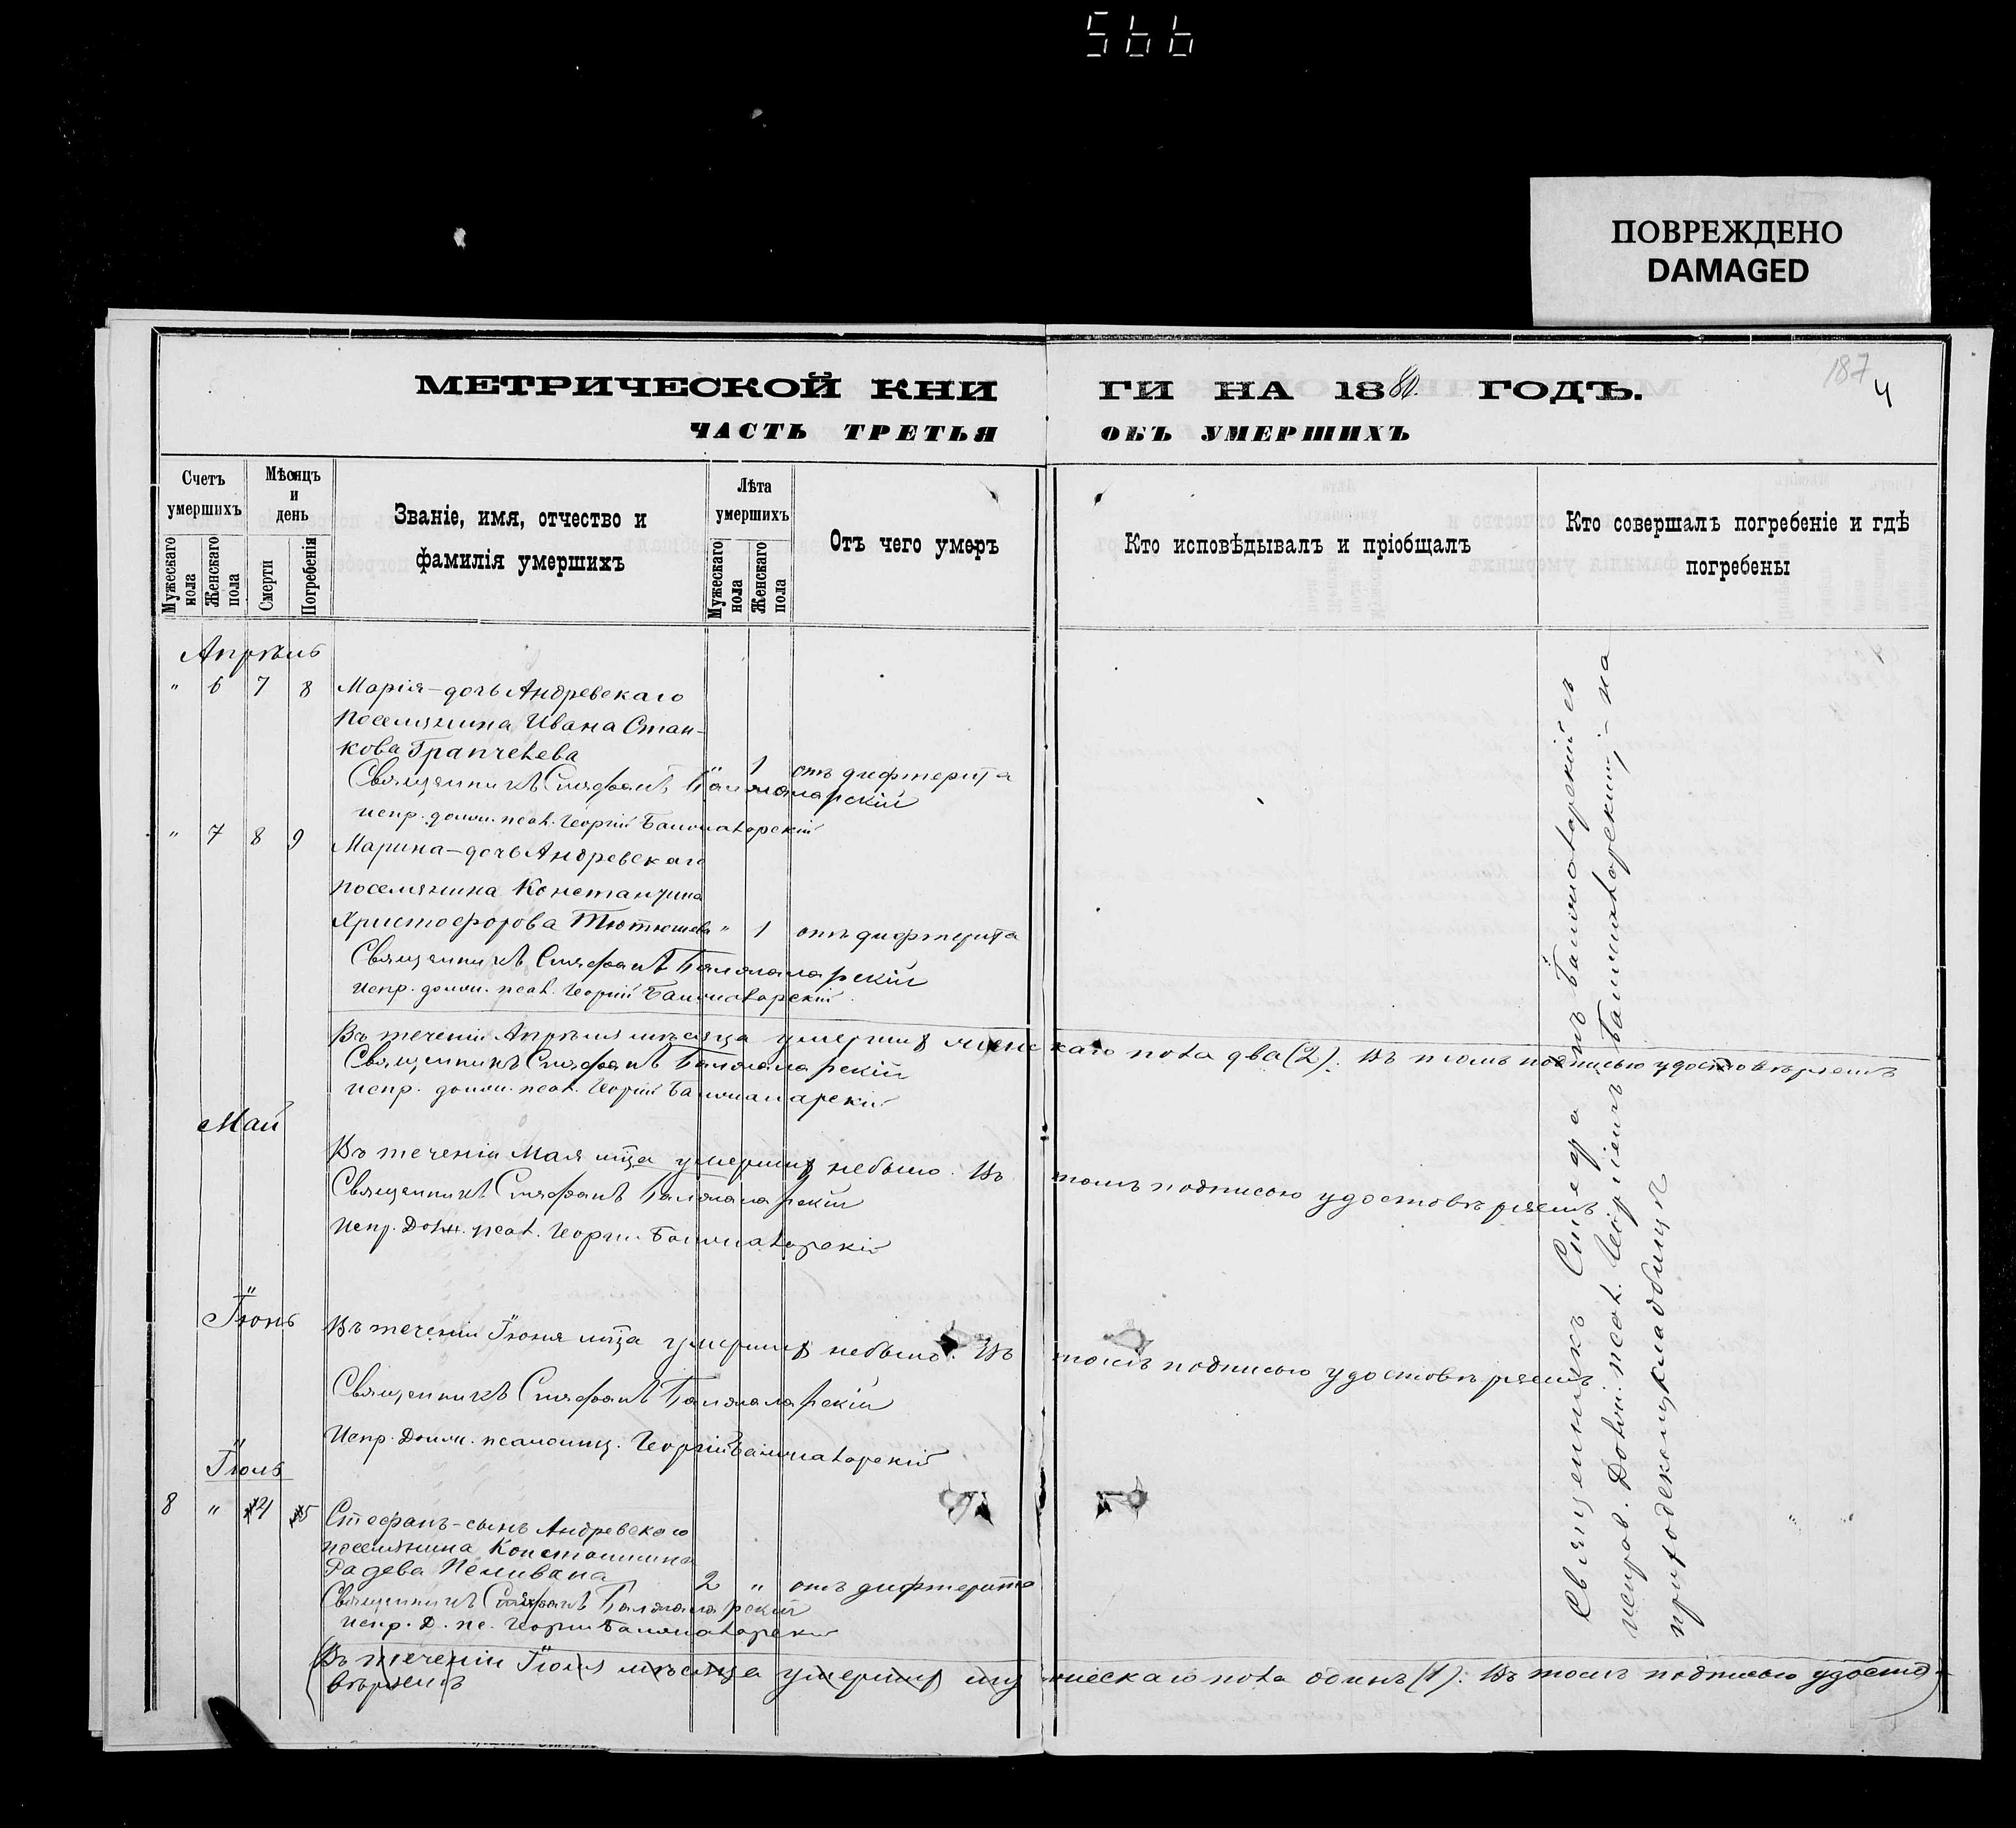 566
ПОВРЕЖДЕНО
DAMAGED
187
4
МЕТРИЧЕСКОЙ КНИ ГИ НА 1880. ГОДЪ.
ЧАСТЬ ТРЕТЬЯ ОБЪ УМЕРШИХЪ
Счетъ умершихъ
Мужескаго пола
Женскаго пола
Мѣсяцъ и день
Смерти
Погребенія
Званіе, имя, отчество и
фамилія умершихъ
Лѣта умершихъ
Мужескаго пола
Женскаго пола
Отъ чего умеръ
Кто исповѣдывалъ и пріобщалъ
Кто совершалъ погребеніе и гдѣ
погребены
Апрѣль
" 6 7 8 Марія - дочь Андревскаго
поселянина Ивана Стан-
кова Грапчелева " 1 отъ дифтерита
Священникъ Стефанъ Балталарскій
испр. долж. псал. Георгій
" 7 8 9 Марина - дочь Андревскаго
поселянина Константина
Христофорова Тютюшева " 1 отъ дифтерита
Священникъ Стефанъ
испр. долж. псал. Георгій
Въ теченіи Апрѣля мѣсяца умершихъ женскаго пола два (2). Въ томъ подписью удостовѣряемъ
Священникъ Стефанъ
испр. долж. псал. Георгій
Май
Въ теченіи Мая мца умершихъ небыло. Въ томъ подписью удостовѣряемъ
Священникъ Стефанъ
Испр. Долж. псал. Георгій
Іюнь
Въ теченіи Іюня мца умершихъ небыло. Въ томъ подписью удостовѣряемъ
Священникъ Стефанъ
Испр. Долж. псаломщ. Георгій
Іюль
8 " 4 5 Стефанъ - сынъ Андревскаго
поселянина Константина
Радева Пеливана 2 " отъ дифтерита
Священникъ Стефанъ
испр. Д. пс. Георгій
Въ теченіи Іюля мѣсяца умершихъ мужескаго пола одинъ (1). Въ томъ подписью удосто-
вѣряемъ
Священникъ Стефанъ съ
испр. Должн. псал. Георгіемъ на
приходскомъ кладбищѣ